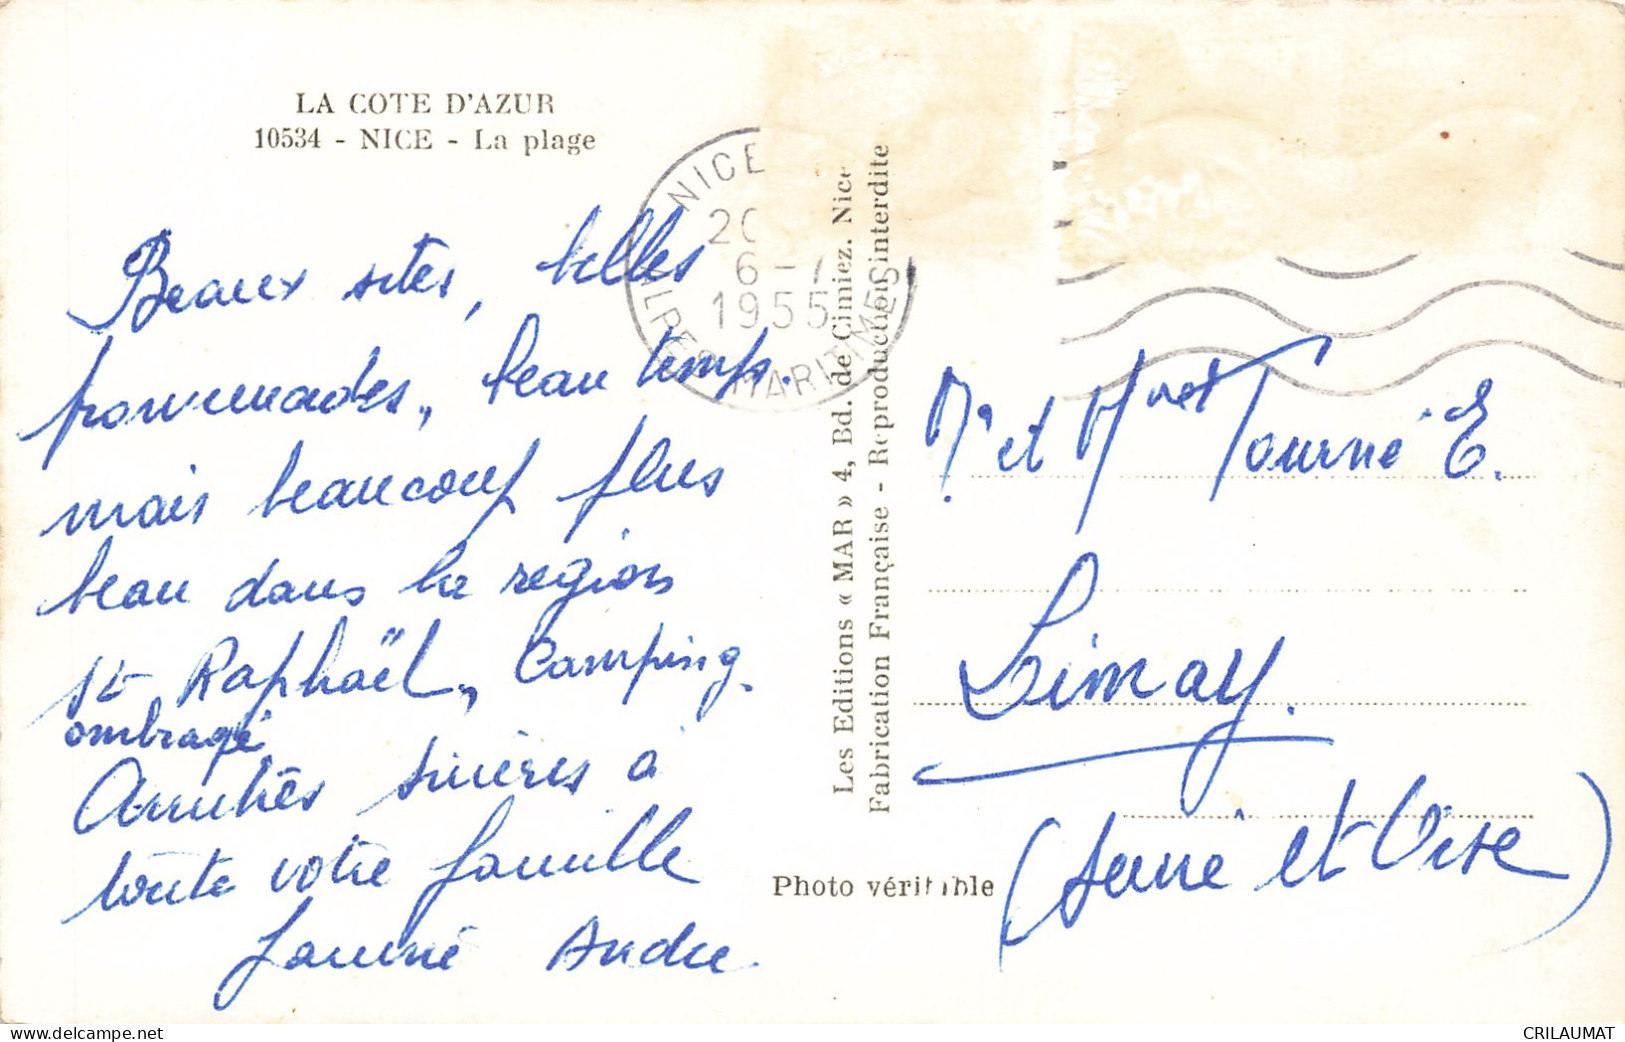 LA COTE D'AZUR
10534 - NICE - La plage
NICE
20
6 - 7
1955
ALPES MARITIMES
Beaux sites, belles
promenades, beau temps.
mais beaucoup plus
beau dans la region
St Raphaël, Camping
ombragé.
Amitiés sincères à
toute votre famille
Jeanne André
Les Editions « MAR » 4, Bd. de Cimiez. Nice
Fabrication Française - Reproduction interdite
Mr et Tourné E.
Limay.
(Seine et Oise)
Photo véritable
delcampe.net
CRILAUMAT